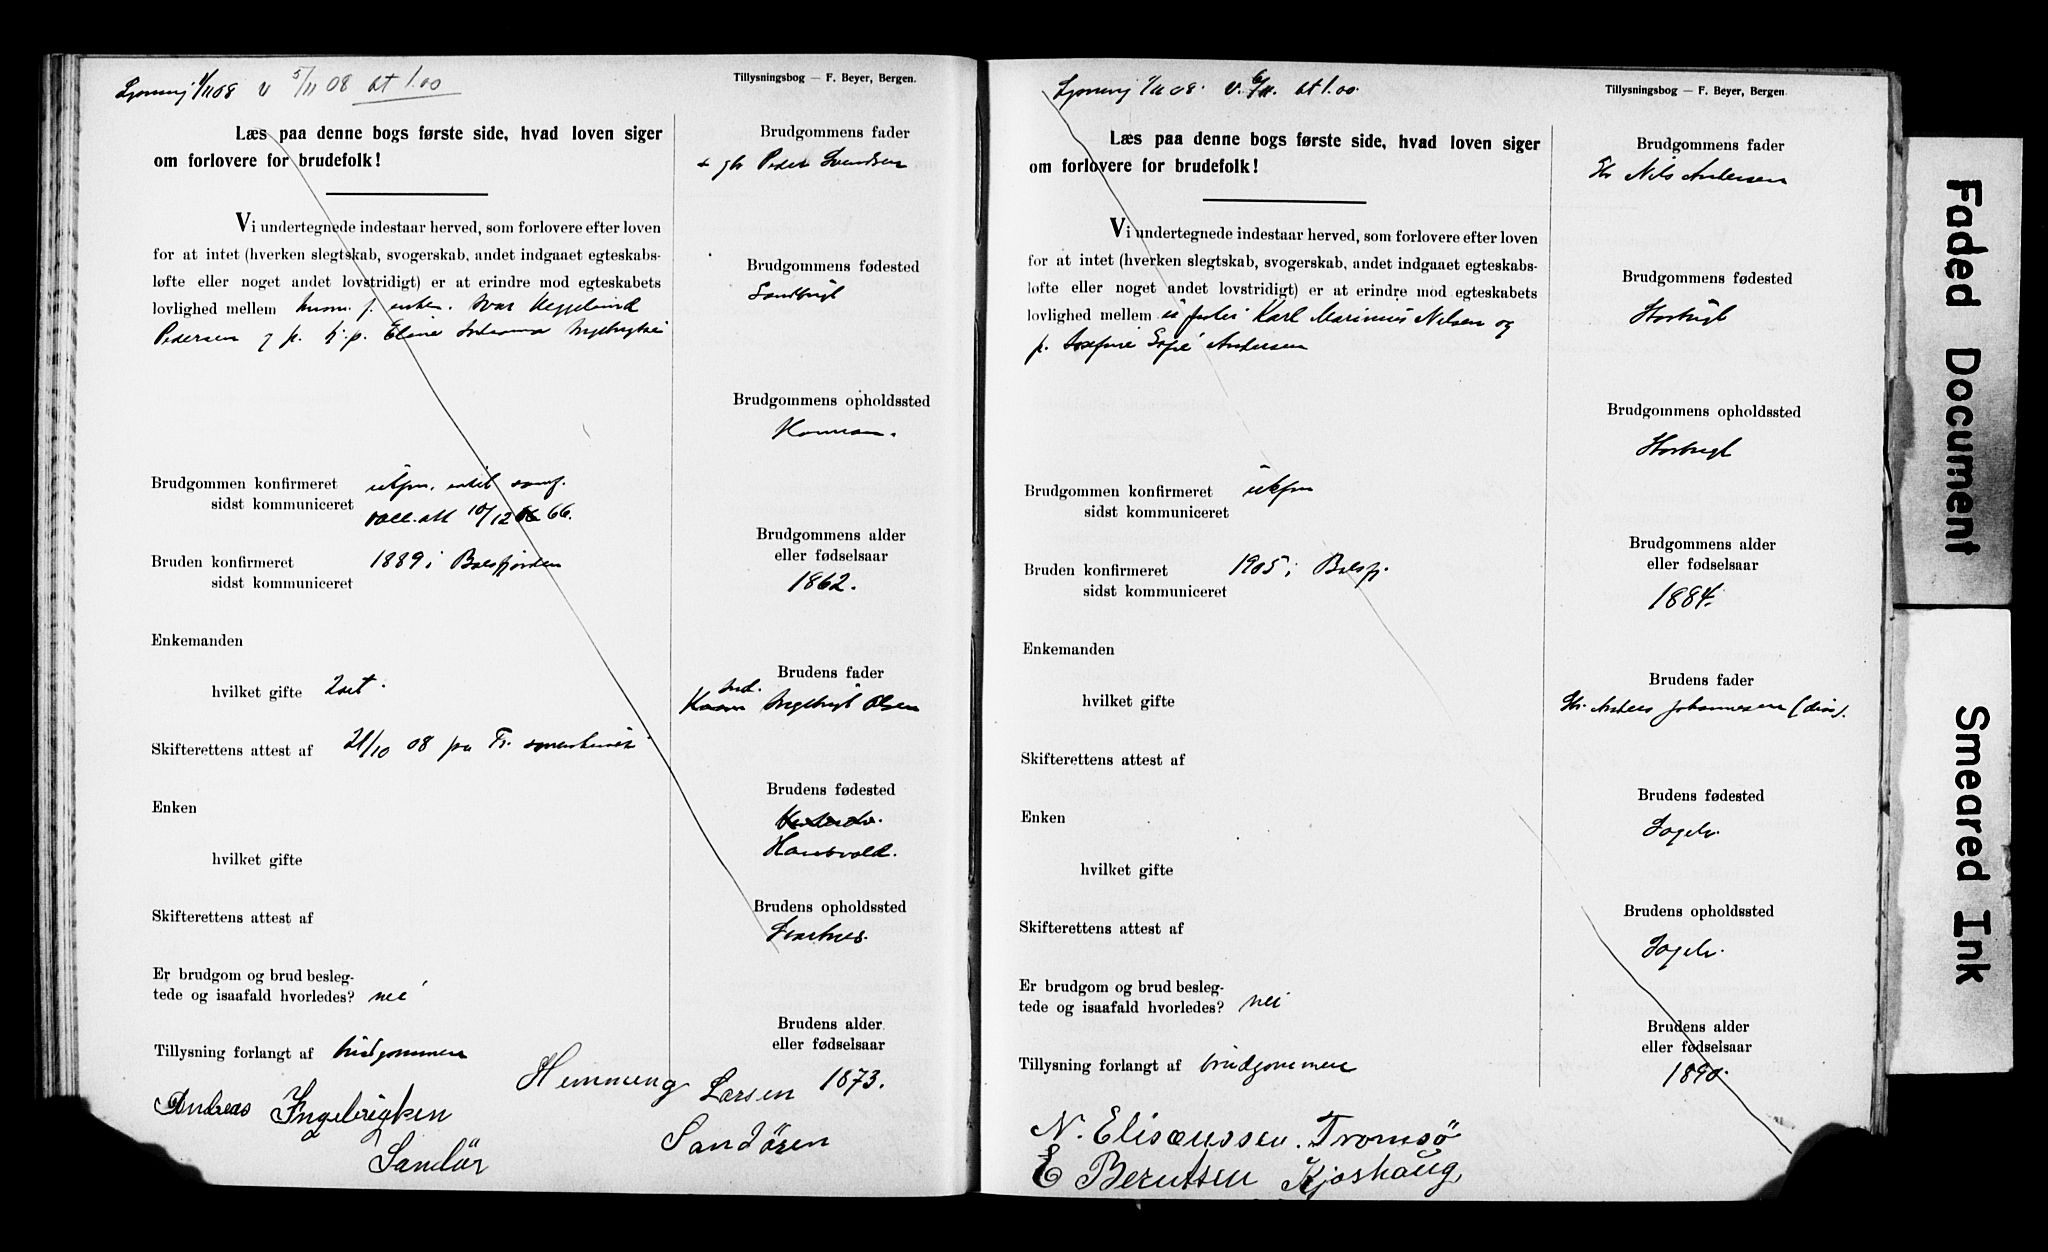 1/11 08 v 5/11 08 at 1.00
Tillysningsbog — F. Beyer, Bergen.
Læs paa denne bogs første side, hvad loven siger
om forlovere for brudefolk!
Vi undertegnede indestaar herved, som forlovere efter loven
for at intet (hverken slegtskab, svogerskab, andet indgaaet egteskabs-
løfte eller noget andet lovstridigt) er at erindre mod egteskabets
lovlighed mellem
Pedersen
Brudgommen konfirmeret
sidst kommuniceret 10/12 66.
Bruden konfirmeret 1889 i Balsfjorden
sidst kommuniceret
Enkemanden
hvilket gifte 2det.
Skifterettens attest af 21/10 08
Enken
hvilket gifte
Skifterettens attest af
Er brudgom og brud besleg-
tede og isaafald hvorledes? nei
Tillysning forlangt af brudgommen
Brudgommens fader
Peder Svendsen
Brudgommens fødested
Sandvigt
Brudgommens opholdssted
Brudgommens alder
eller fødselsaar
1862.
Brudens fader
Ingebrigt Olsen
Brudens fødested
Brudens opholdssted
Svartnes.
Brudens alder
eller fødselsaar
1873.
Hemming Larsen
Sandören
Andreas Ingebrigtsen
Sandör
1/11 08. v. 6/11. at 1.00.
Tillysningsbog — F. Beyer, Bergen.
Læs paa denne bogs første side, hvad loven siger
om forlovere for brudefolk!
Vi undertegnede indestaar herved, som forlovere efter loven
for at intet (hverken slegtskab, svogerskab, andet indgaaet egteskabs-
løfte eller noget andet lovstridigt) er at erindre mod egteskabets
lovlighed mellem Karl Marinius Nilsen og
p. Josefine Sofie Andersen
Brudgommen konfirmeret
sidst kommuniceret
Bruden konfirmeret 1905 i Balsfj.
sidst kommuniceret
Enkemanden
hvilket gifte
Skifterettens attest af
Enken
hvilket gifte
Skifterettens attest af
Er brudgom og brud besleg-
tede og isaafald hvorledes? nei
Tillysning forlangt af brudgommen
Brudgommens fader
Nils Andersen
Brudgommens fødested
Brudgommens opholdssted
Brudgommens alder
eller fødselsaar
1884.
Brudens fader
Anders Johannesen
Brudens fødested
Sagelv.
Brudens opholdssted
Sagelv.
Brudens alder
eller fødselsaar
1890.
N. Elisæussen. Tromsö
E Berntsen Kjoshaug,
Faded Document
Smeared Ink